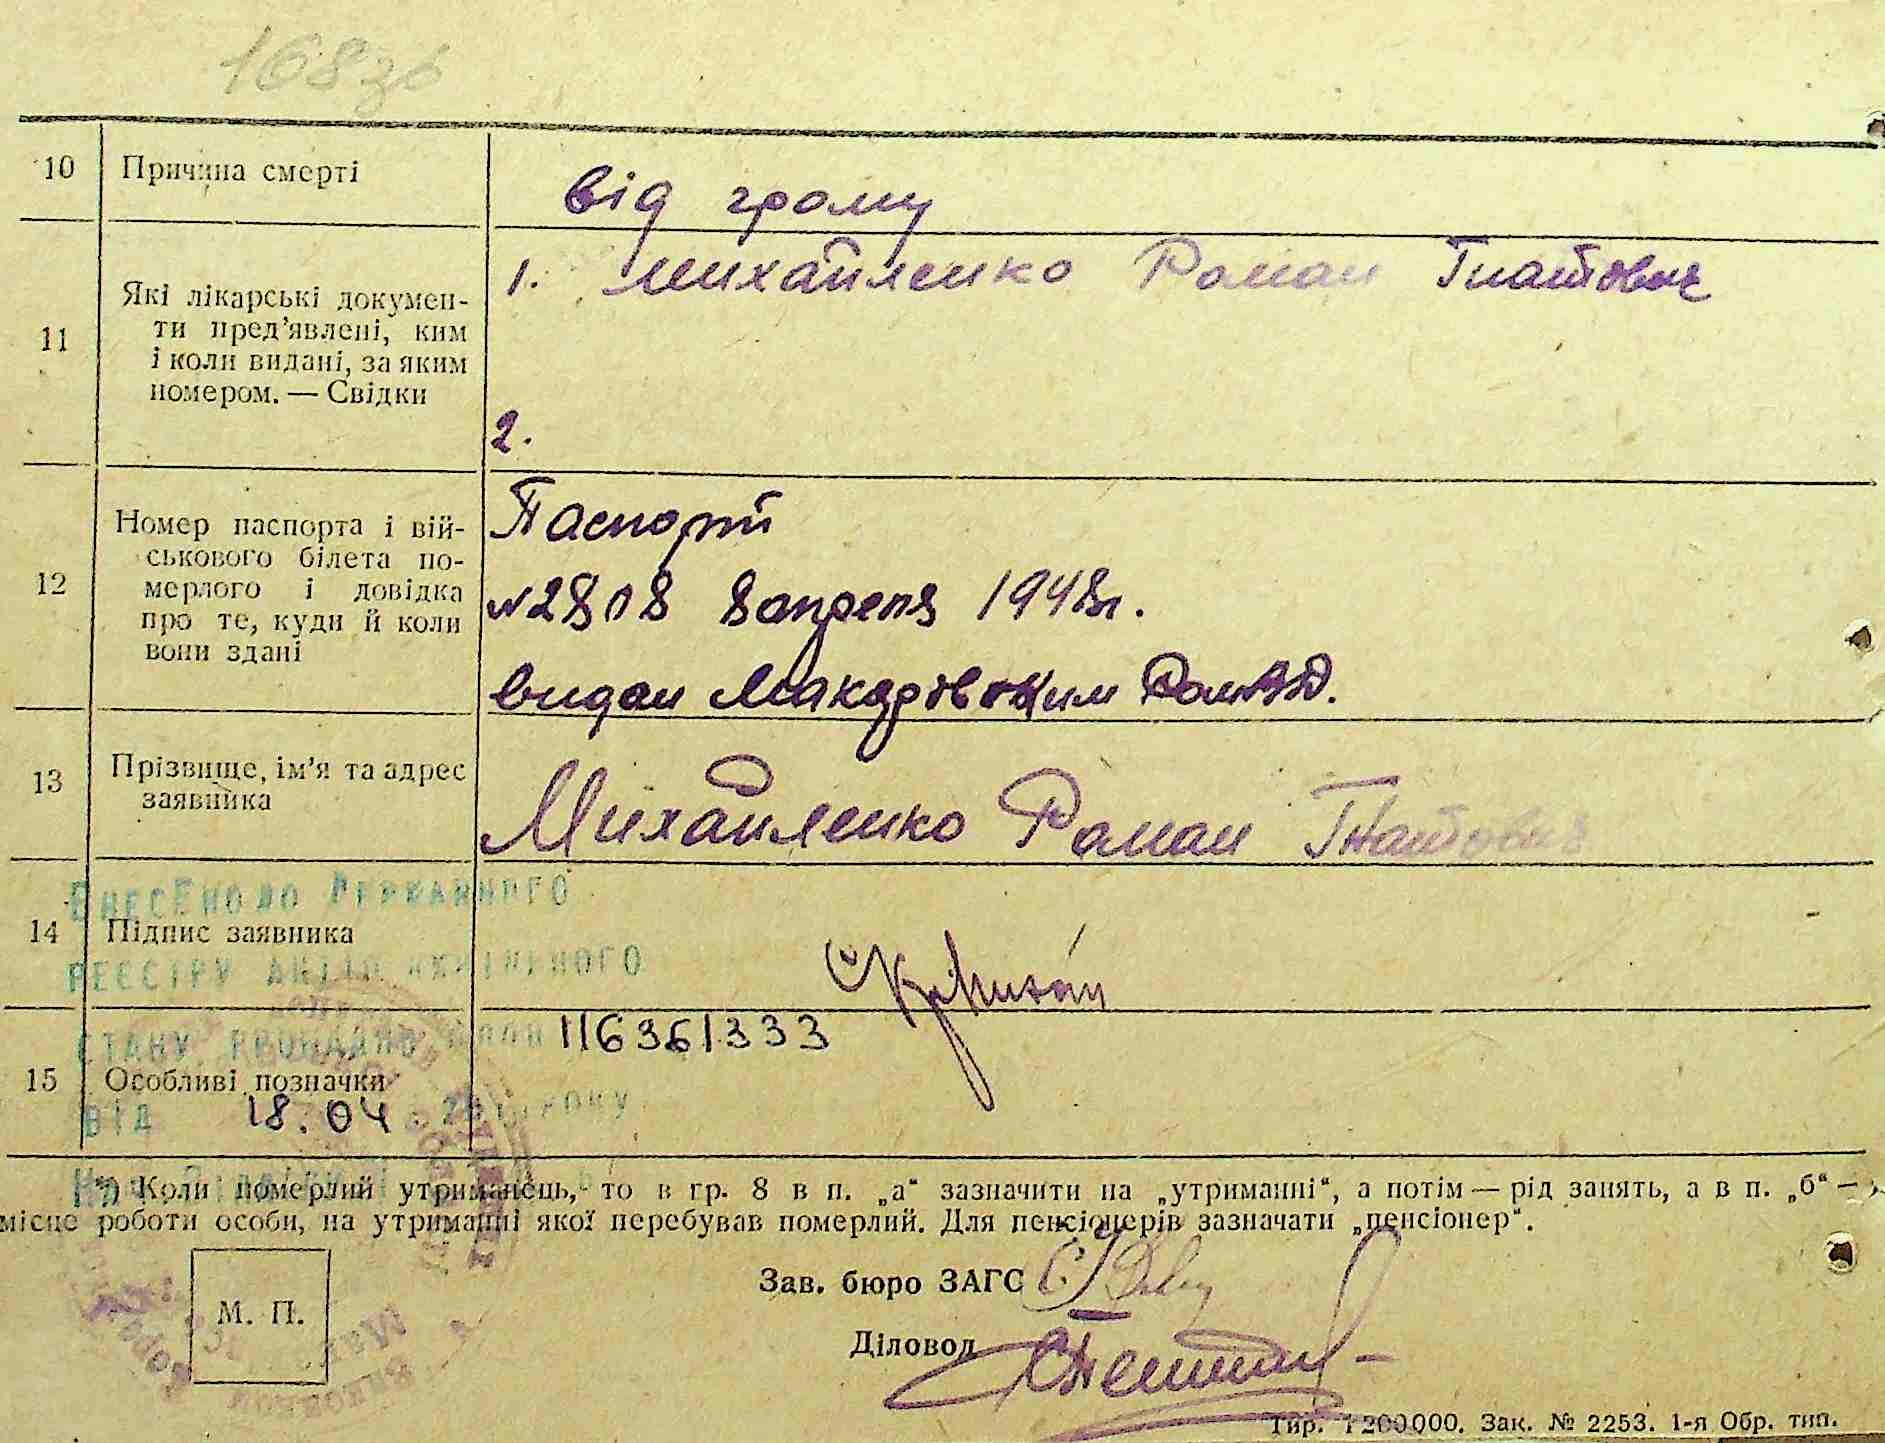 168зб
10 Причина смерті
від грому
11 Які лікарські докумен-
ти пред’явлені, ким
і коли видані, за яким
номером. — Свідки
1. Михайленко Роман Гнатович
2.
12 Номер паспорта і вій-
ськового білета по-
мерлого і довідка
про те, куди й коли
вони здані
Паспорт
№2808 8 апреля 1948г.
видан Макаровским
13 Прізвище, ім’я та адрес
заявника
Михайленко Роман Гнатович
ВНЕСЕНО ДО ДЕРЖАВНОГО
14 Підпис заявника
РЕЄСТРУ АКТІВ ЦИВІЛЬНОГО
СТАНУ ГРОМАДЯН 116361333
15 Особливі позначки
ВІД 18.04. РОКУ
*) Коли померлий утриманець, то в гр. 8 в п. „а“ зазначити на „утриманні“, а потім — рід занять, а в п. „б“ —
місце роботи особи, на утриманні якої перебував померлий. Для пенсіонерів зазначати „пенсіонер“.
Зав. бюро ЗАГС
М. П.
Діловод
Тир. 1200000. Зак. № 2253. 1-я Обр. тип.